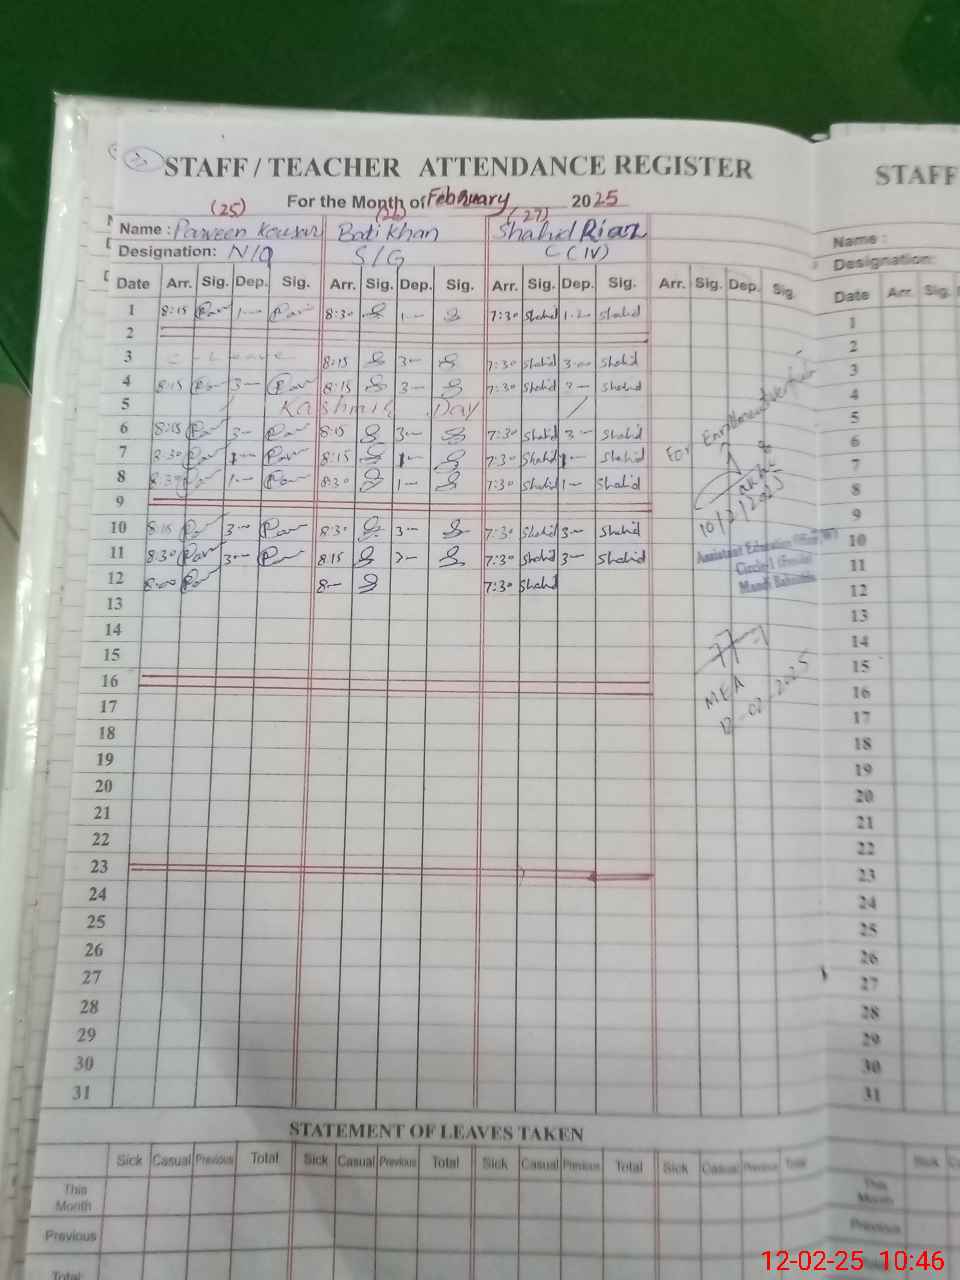 (3) STAFF / TEACHER ATTENDANCE REGISTER
STAFF
For the Month of February 2025
(25) (26) (27)
Name : Parveen Kousar Badi Khan Shahid Riaz
Name :
Designation: N/Q S/G C(IV)
Designation:
Date Arr. Sig. Dep. Sig. Arr. Sig. Dep. Sig. Arr. Sig. Dep. Sig. Arr. Sig. Dep. Sig.
Date Arr. Sig.
1 8:15 Par 1-- Par 8:30 1-- 7:30 Shahid 1-2- Shahid
2
3 C-Leave 8:15 3-- 7:30 Shahid 3-00 Shahid
4 8:15 Par 3-- Par 8:15 3-- 7:30 Shahid 3-- Shahid
5 / Kashmir Day /
6 8:15 Par 3-- Par 8:15 3-- 7:30 Shahid 3-- Shahid
7 8:30 Par 1-- Par 8:15 1-- 7:30 Shahid 1-- Shahid
8 8:30 Par 1-- Par 8:30 1-- 7:30 Shahid 1-- Shahid
9
10 8:15 Par 3-- Par 8:30 3-- 7:30 Shahid 3-- Shahid
11 8:30 Par 3-- Par 8:15 3-- 7:30 Shahid 3-- Shahid
12 8:00 Par 8-- 7:30 Shahid
13
14
15
16
17
18
19
20
21
22
23
24
25
26
27
28
29
30
31
For Enrollment
10/2/2025
Assistant Education
Circle-1 (Female)
Mandi
MEA
12-02-2025
1
2
3
4
5
6
7
8
9
10
11
12
13
14
15
16
17
18
19
20
21
22
23
24
25
26
27
28
29
30
31
STATEMENT OF LEAVES TAKEN
Sick Casual Previous Total Sick Casual Previous Total Sick Casual Previous Total Sick Casual Previous Total
Sick
This Month
This Month
Previous
Previous
Total
Total
12-02-25 10:46